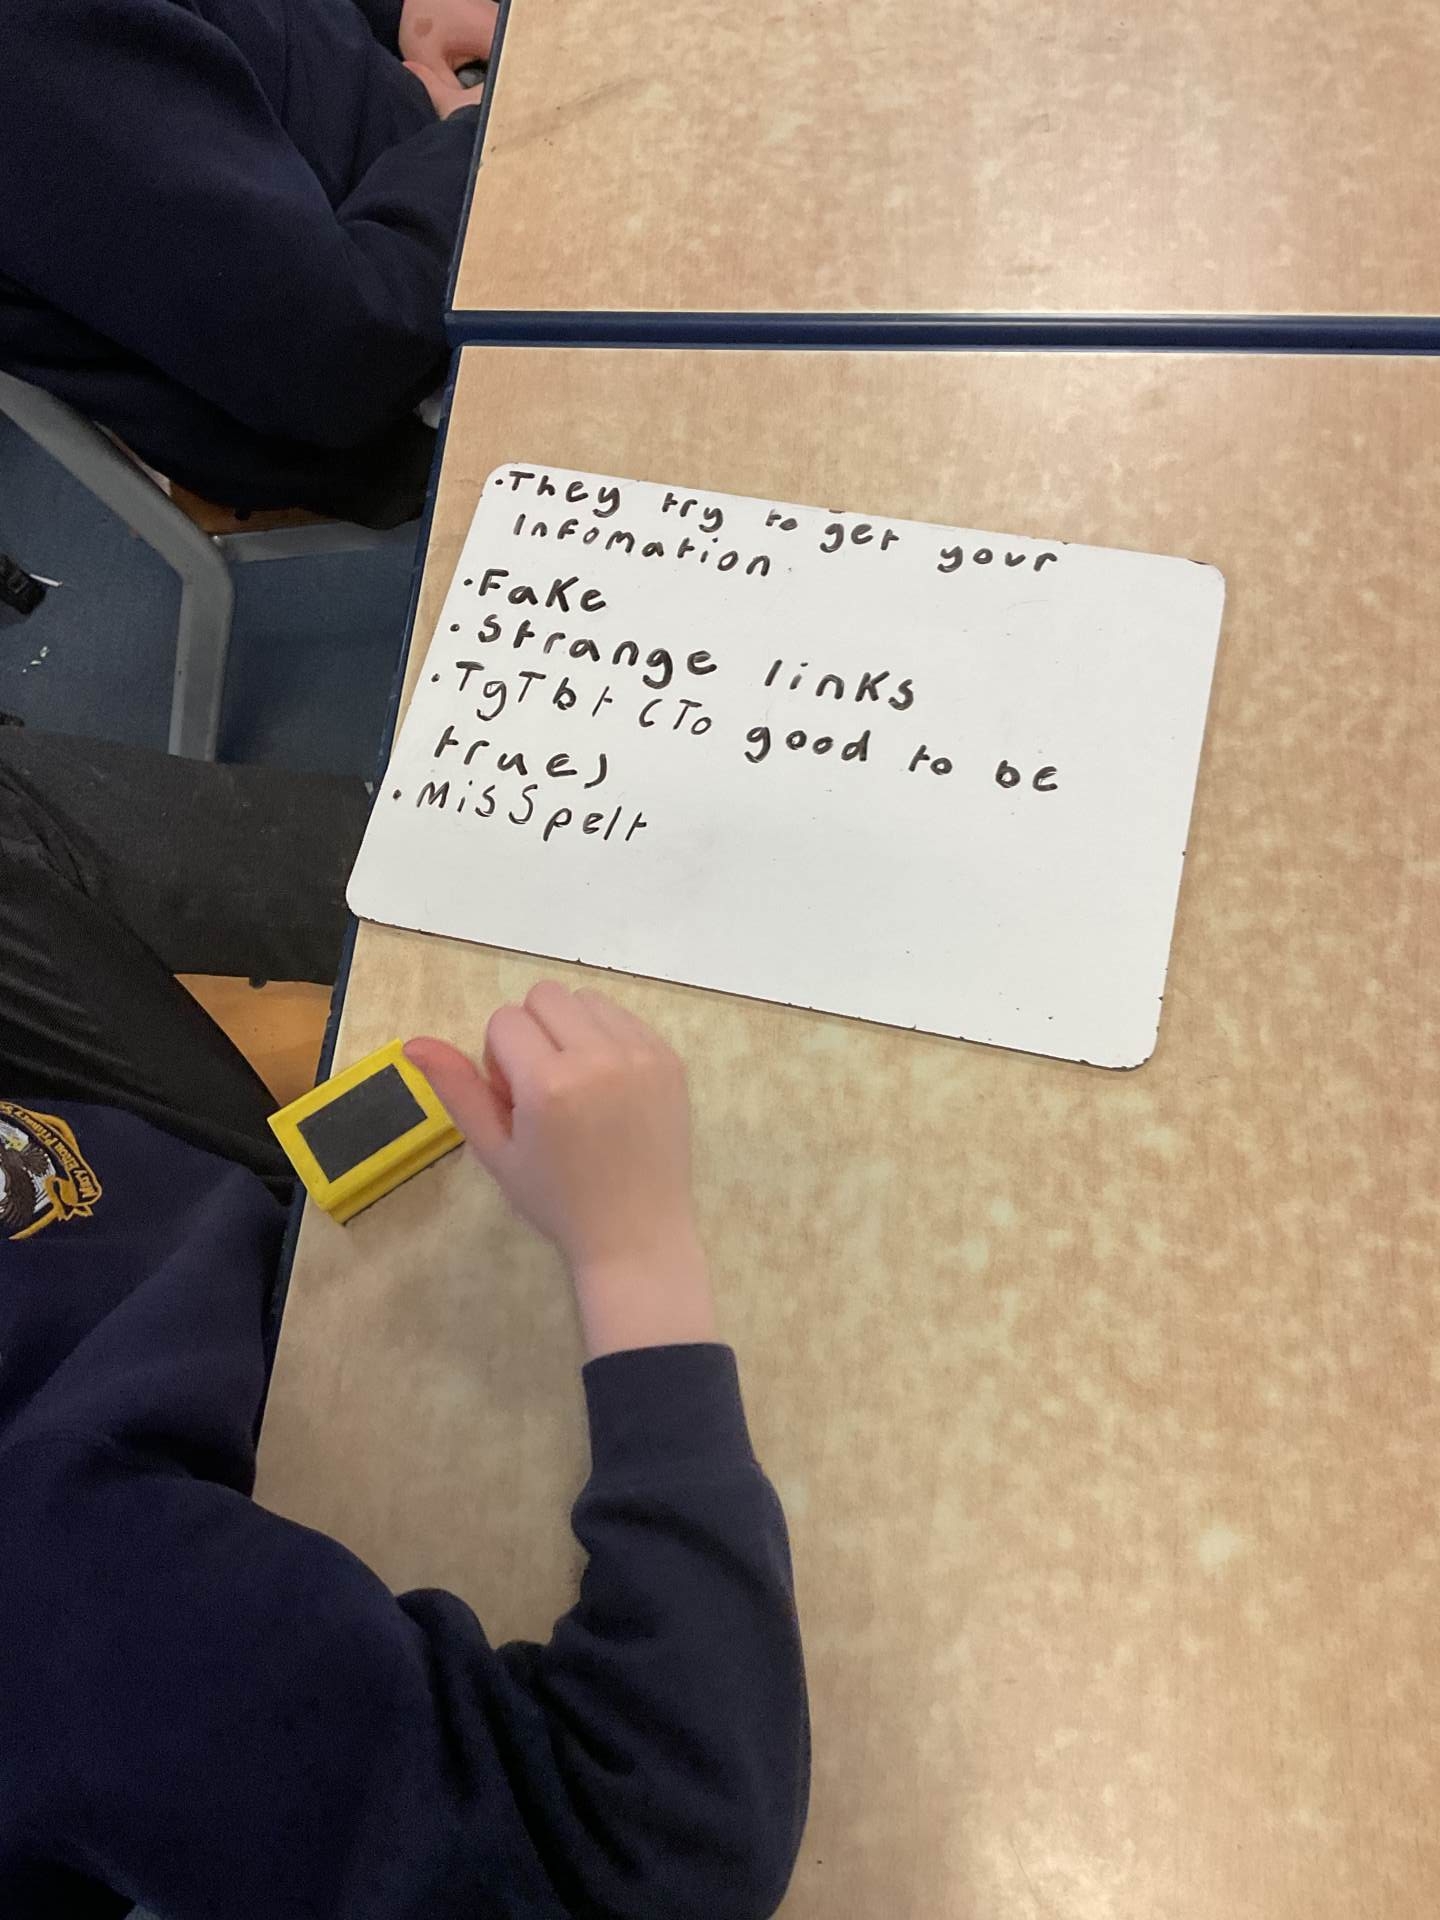 •They try to get your
Infomation
•Fake
•Strange links
•TgTbt (To good to be
true)
•Misspelt